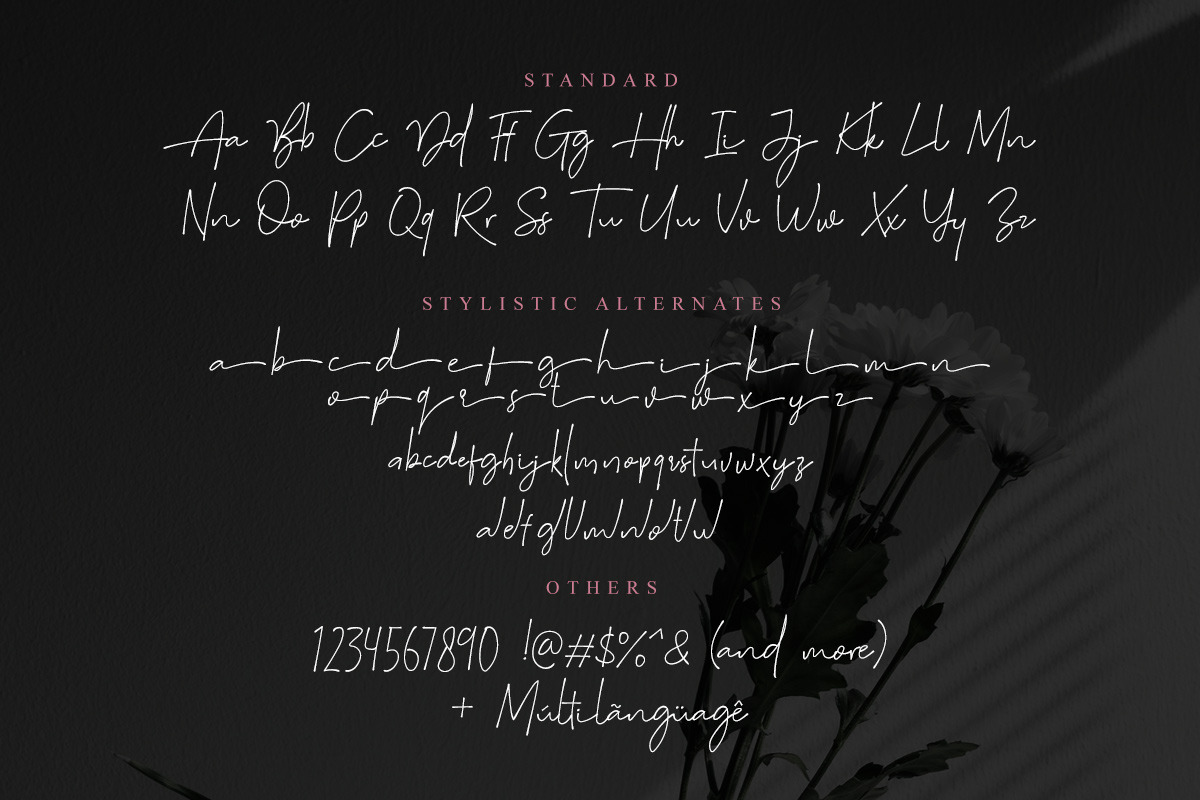 STANDARD
Aa Bb Cc Dd Ff Gg Hh Ii Jj Kk Ll Mn
Nn Oo Pp Qq Rr Ss Tu Uu Vv Ww Xx Yy Zz
STYLISTIC ALTERNATES
abcdefghijklmn
opqrstuvwxyz
abcdefghijklmnopqrstuvwxyz
OTHERS
1234567890 !@#$%^& (and more)
+ Múltilãngüagê